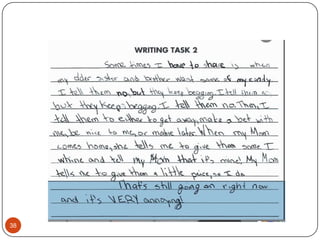 WRITING TASK 2
Some times I have to share is when
my older sister and brother want some of my candy
I tell them no, but they keep begging I tell them no
but they keep begging I tell them no. Then, I
tell them to either to get away, make a bet with
me, be nice to me, or mabie later. When my Mom
comes home, she tells me to give them some I
whine and tell my Mom that it's mine! My Mom
tells me to give them a little piece, so I do
That's still going on right now
and it's VERY annoying!
38